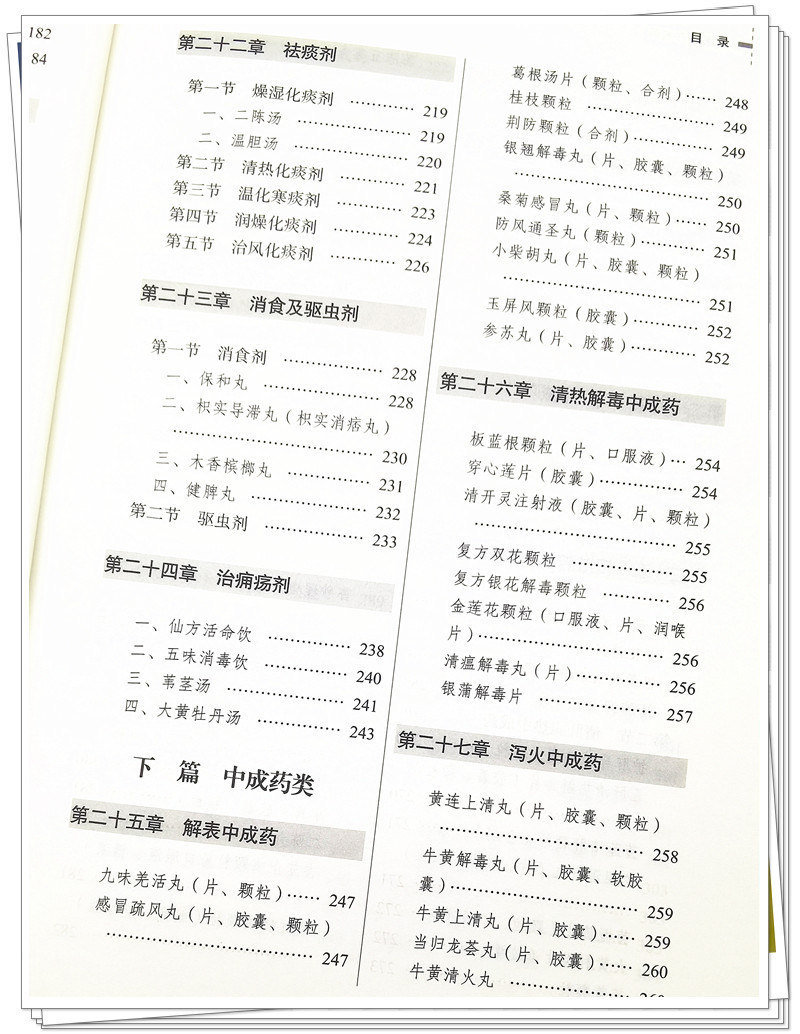 182
84
目 录
第二十二章 祛痰剂
第一节 燥湿化痰剂 ………… 219
一、二陈汤 ………… 219
二、温胆汤 ………… 220
第二节 清热化痰剂 ………… 221
第三节 温化寒痰剂 ………… 223
第四节 润燥化痰剂 ………… 224
第五节 治风化痰剂 ………… 226
第二十三章 消食及驱虫剂
第一节 消食剂 ………… 228
一、保和丸 ………… 228
二、枳实导滞丸（枳实消痞丸）
………… 230
三、木香槟榔丸 ………… 231
四、健脾丸 ………… 232
第二节 驱虫剂 ………… 233
第二十四章 治痈疡剂
一、仙方活命饮 ………… 238
二、五味消毒饮 ………… 240
三、苇茎汤 ………… 241
四、大黄牡丹汤 ………… 243
下 篇 中成药类
第二十五章 解表中成药
九味羌活丸（片、颗粒）…… 247
感冒疏风丸（片、胶囊、颗粒）
………… 247
葛根汤片（颗粒、合剂）…… 248
桂枝颗粒 ………… 249
荆防颗粒（合剂）………… 249
银翘解毒丸（片、胶囊、颗粒）
………… 250
桑菊感冒丸（片、颗粒）…… 250
防风通圣丸（颗粒）………… 251
小柴胡丸（片、胶囊、颗粒）
………… 251
玉屏风颗粒（胶囊）………… 252
参苏丸（片、胶囊）………… 252
第二十六章 清热解毒中成药
板蓝根颗粒（片、口服液）… 254
穿心莲片（胶囊）………… 254
清开灵注射液（胶囊、片、颗粒）
………… 255
复方双花颗粒 ………… 255
复方银花解毒颗粒 ………… 256
金莲花颗粒（口服液、片、润喉
片）………… 256
清瘟解毒丸（片）………… 256
银蒲解毒片 ………… 257
第二十七章 泻火中成药
黄连上清丸（片、胶囊、颗粒）
………… 258
牛黄解毒丸（片、胶囊、软胶
囊）………… 259
牛黄上清丸（片、胶囊）…… 259
当归龙荟丸（片、胶囊）…… 260
牛黄清火丸 …………